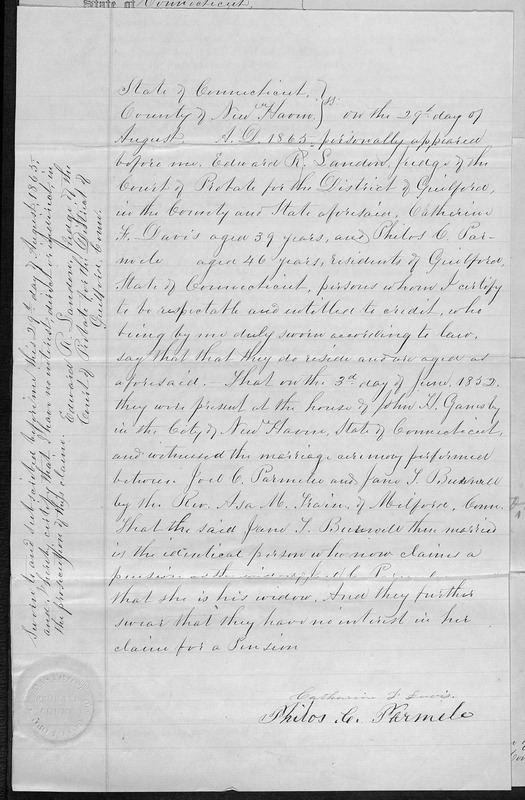 State of Connecticut.
State of Connecticut, }
County of New Haven, } ss. on the 29th day of
August A.D. 1865 personally appeared
before me, Edward R. Landon, Judge of the
Court of Probate for the District of Guilford,
in the County and State aforesaid, Catherine
F. Davis aged 39 years, and Philos C. Par-
mele aged 46 years, residents of Guilford,
State of Connecticut, persons whom I certify
to be respectable and entitled to credit, who
being by me duly sworn according to law,
say that that they do reside and are aged as
aforesaid. — That on the 3d day of June, 1852.
they were present at the house of John H.
in the City of New Haven, State of Connecticut,
and witnessed the marriage ceremony performed
between Joel C. Parmelee and Jane T. Burwell
by the Rev. Asa M. Train, of Milford, Conn.
That the said Jane T. Burwell then married
is the identical person who now claims a
pension as the widow of Joel C.
that she is his widow. And they further
swear that they have no interest in her
claim for a Pension
Catharine F. Davis.
Philos. C. Parmele
Sworn to and subscribed before me this 29th day of August, 1865.
and I hereby certify that I have no interest, direct or indirect, in
the prosecution of this claim.
Edward R. Landon Judge of the
Court of Probate for the District of
Guilford, Conn.